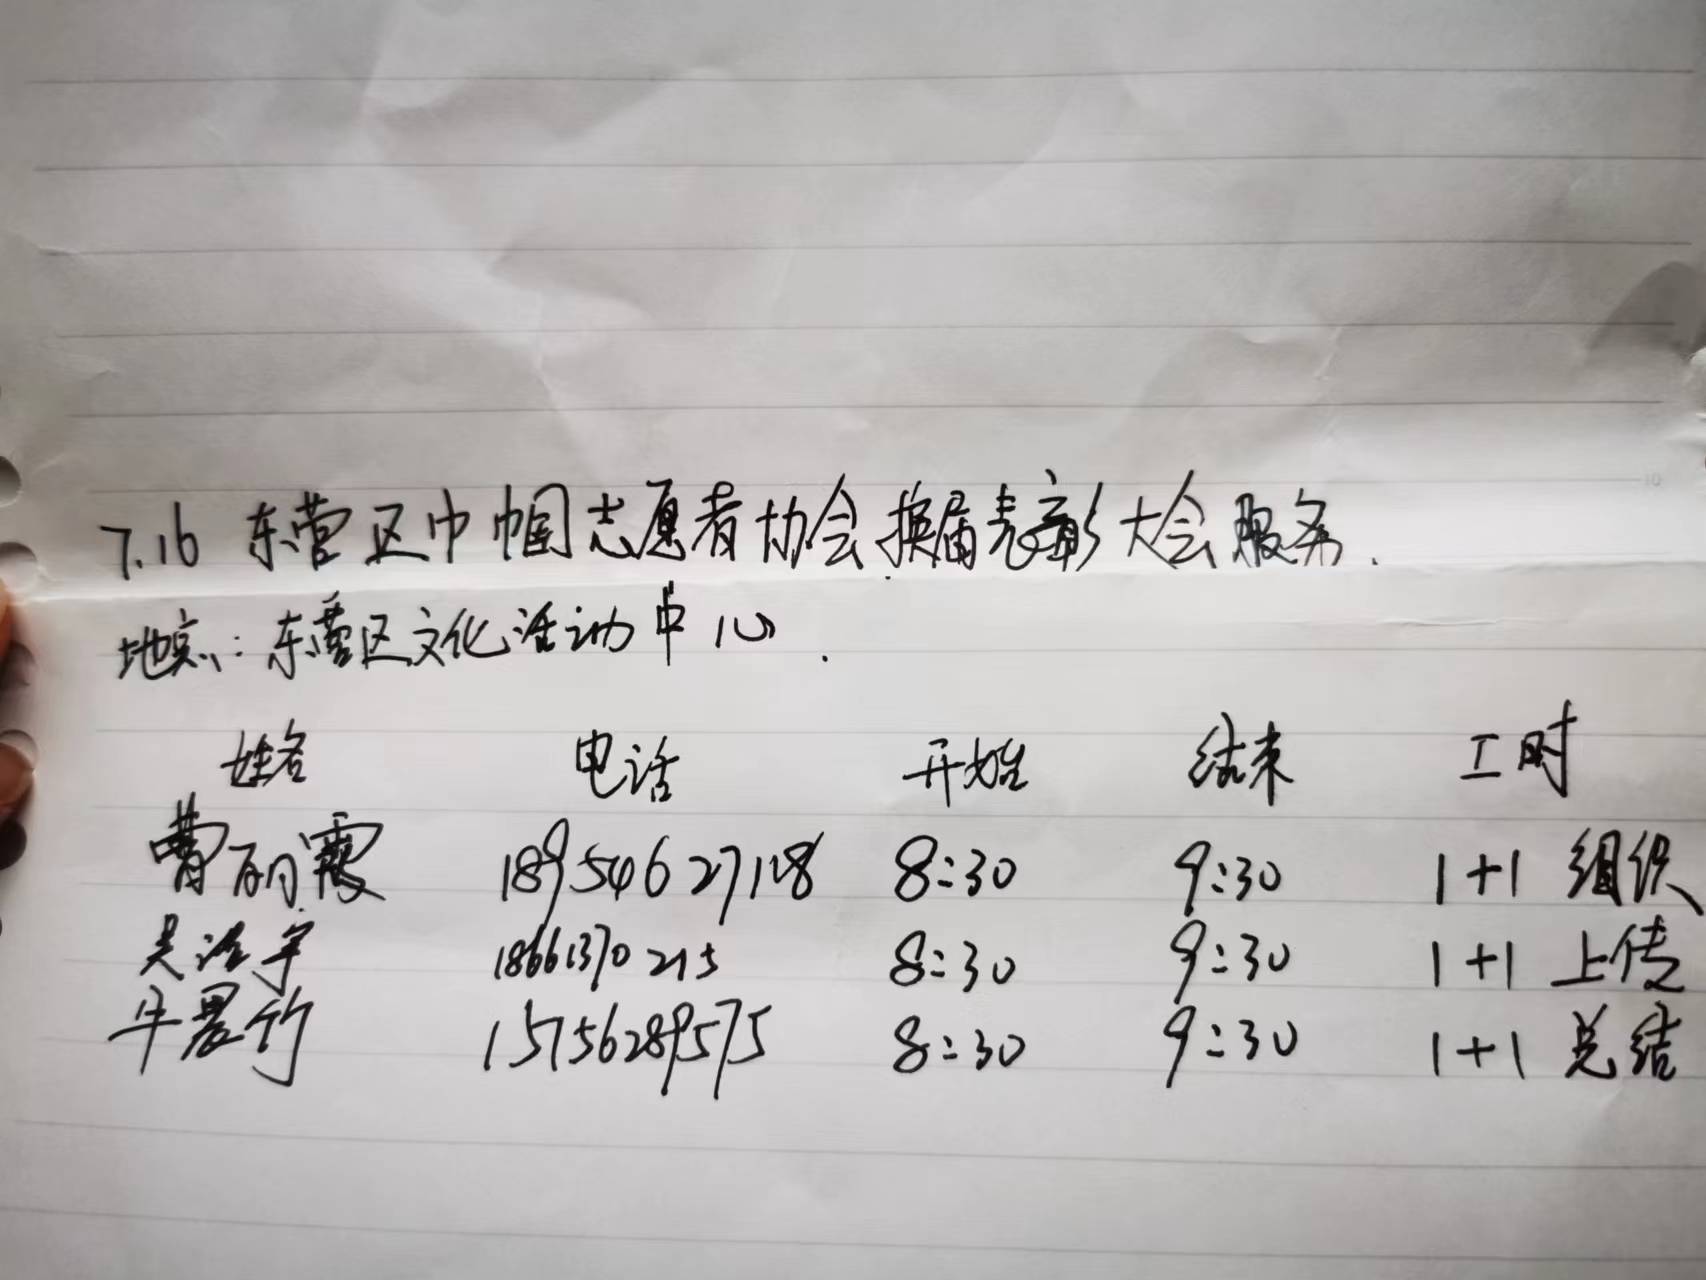 7.16 东营区巾帼志愿者协会换届表彰大会服务.
地点：东营区文化活动中心.
姓名 电话 开始 结束 工时
曹丽霞 18954627128 8:30 9:30 1+1 组织
吴泽宇 18661370215 8:30 9:30 1+1 上传
牛景竹 15756289575 8:30 9:30 1+1 总结